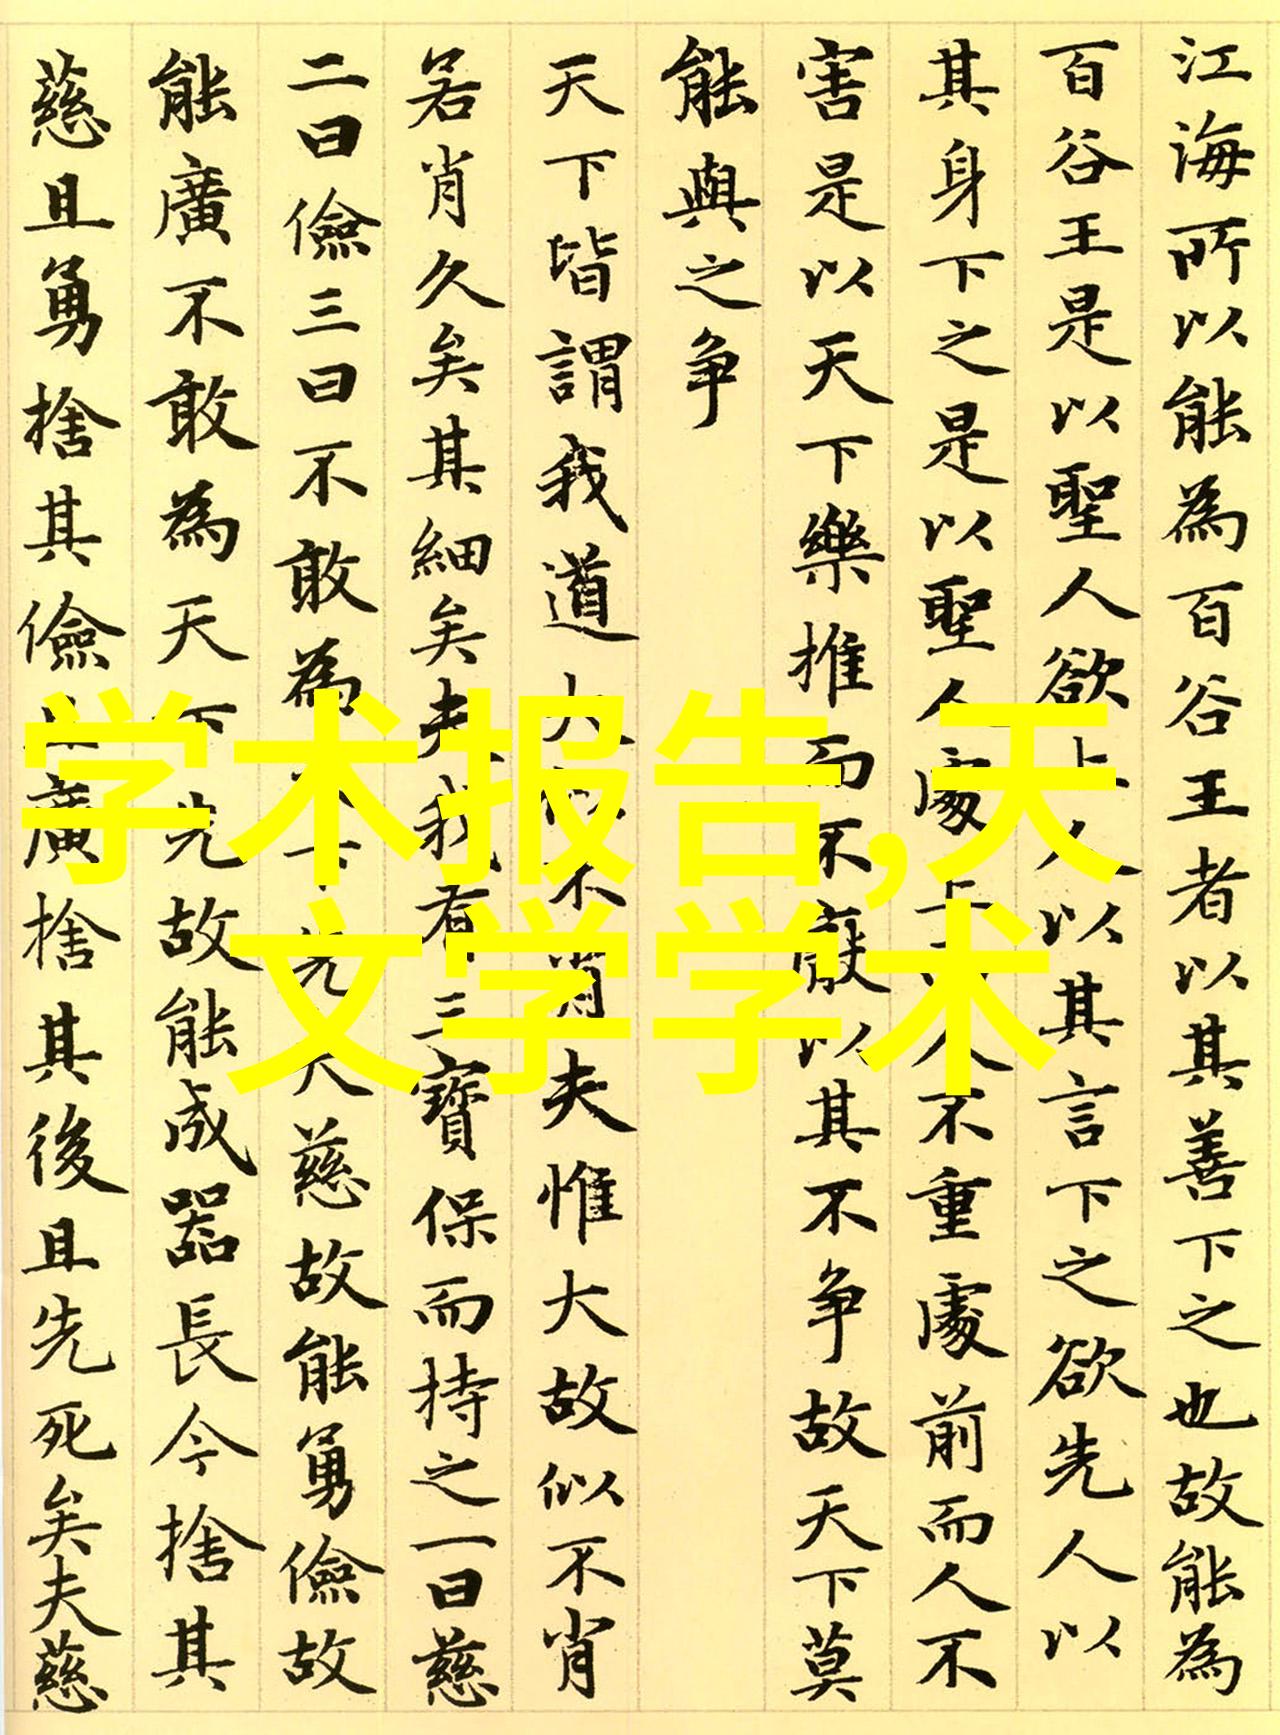 江海所以能為百谷王者以其善下之也故能為
百谷王是以聖人欲上人以其言下之欲先人以
其身下之是以聖人處上而人不重處前而人不
害是以天下樂推而不厭以其不争故天下莫
能與之争
天下皆謂我道大似不肖夫惟大故似不肖
若肖久矣其細矣夫我有三寶保而持之一曰慈
二曰儉三曰不敢為天下先夫慈故能勇儉故
能廣不敢為天下先故能成器長今捨其
慈且勇捨其儉且廣捨其後且先死矣夫慈
学术报告,天
文学学术